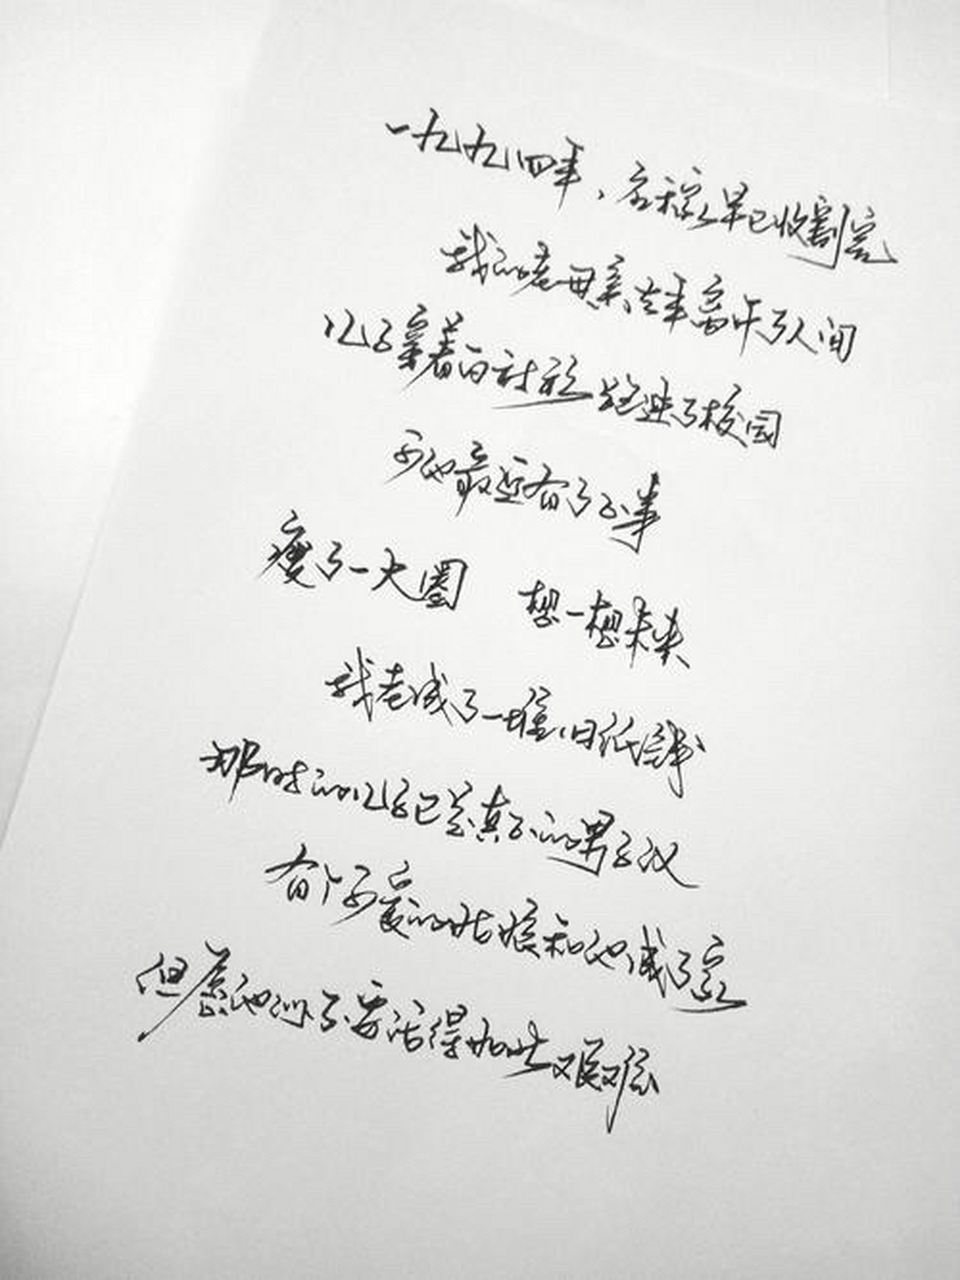 一九九四年，庄稼早已收割完
我的老母亲去年离开了人间
儿子穿着白衬衫跑进了校园
可他最近有了心事
瘦了一大圈 想一想未来
我老成了一堆旧纸钱
那时的儿子已是真正的男子汉
有个可爱的姑娘和他成了家
但愿他们不要活得如此艰难